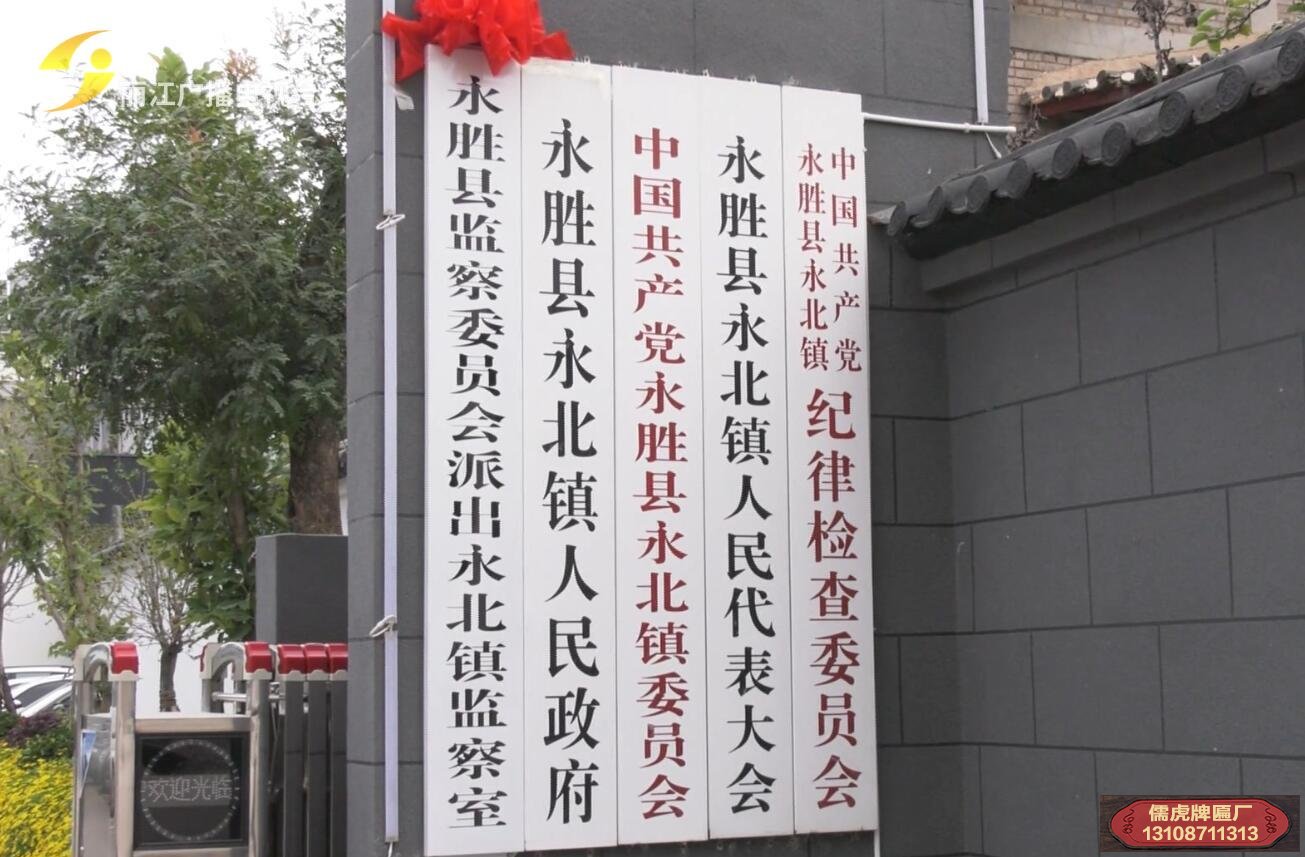 丽江广播电视台
永胜县监察委员会派出永北镇监察室
永胜县永北镇人民政府
中国共产党永胜县永北镇委员会
永胜县永北镇人民代表大会
中国共产党
永胜县永北镇
纪律检查委员会
欢迎光临
儒虎牌匾厂
13108711313